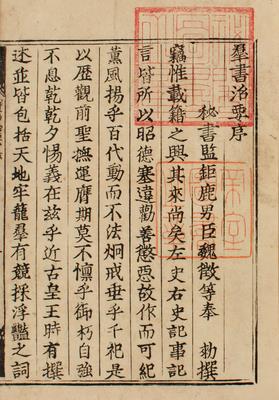 羣書治要序
秘書監鉅鹿男臣魏徵等奉　勑撰
竊惟載籍之興其來尚矣左史右史記事記
言皆所以昭德塞違勸善懲惡故作而可紀
薫風揚乎百代動而不法炯戒垂乎千祀是
以歷觀前聖撫運膺期莫不懍乎御朽自強
不息乾乾夕惕義在茲乎近古皇王時有撰
述並皆包括天地牢籠羣有競採浮豔之詞